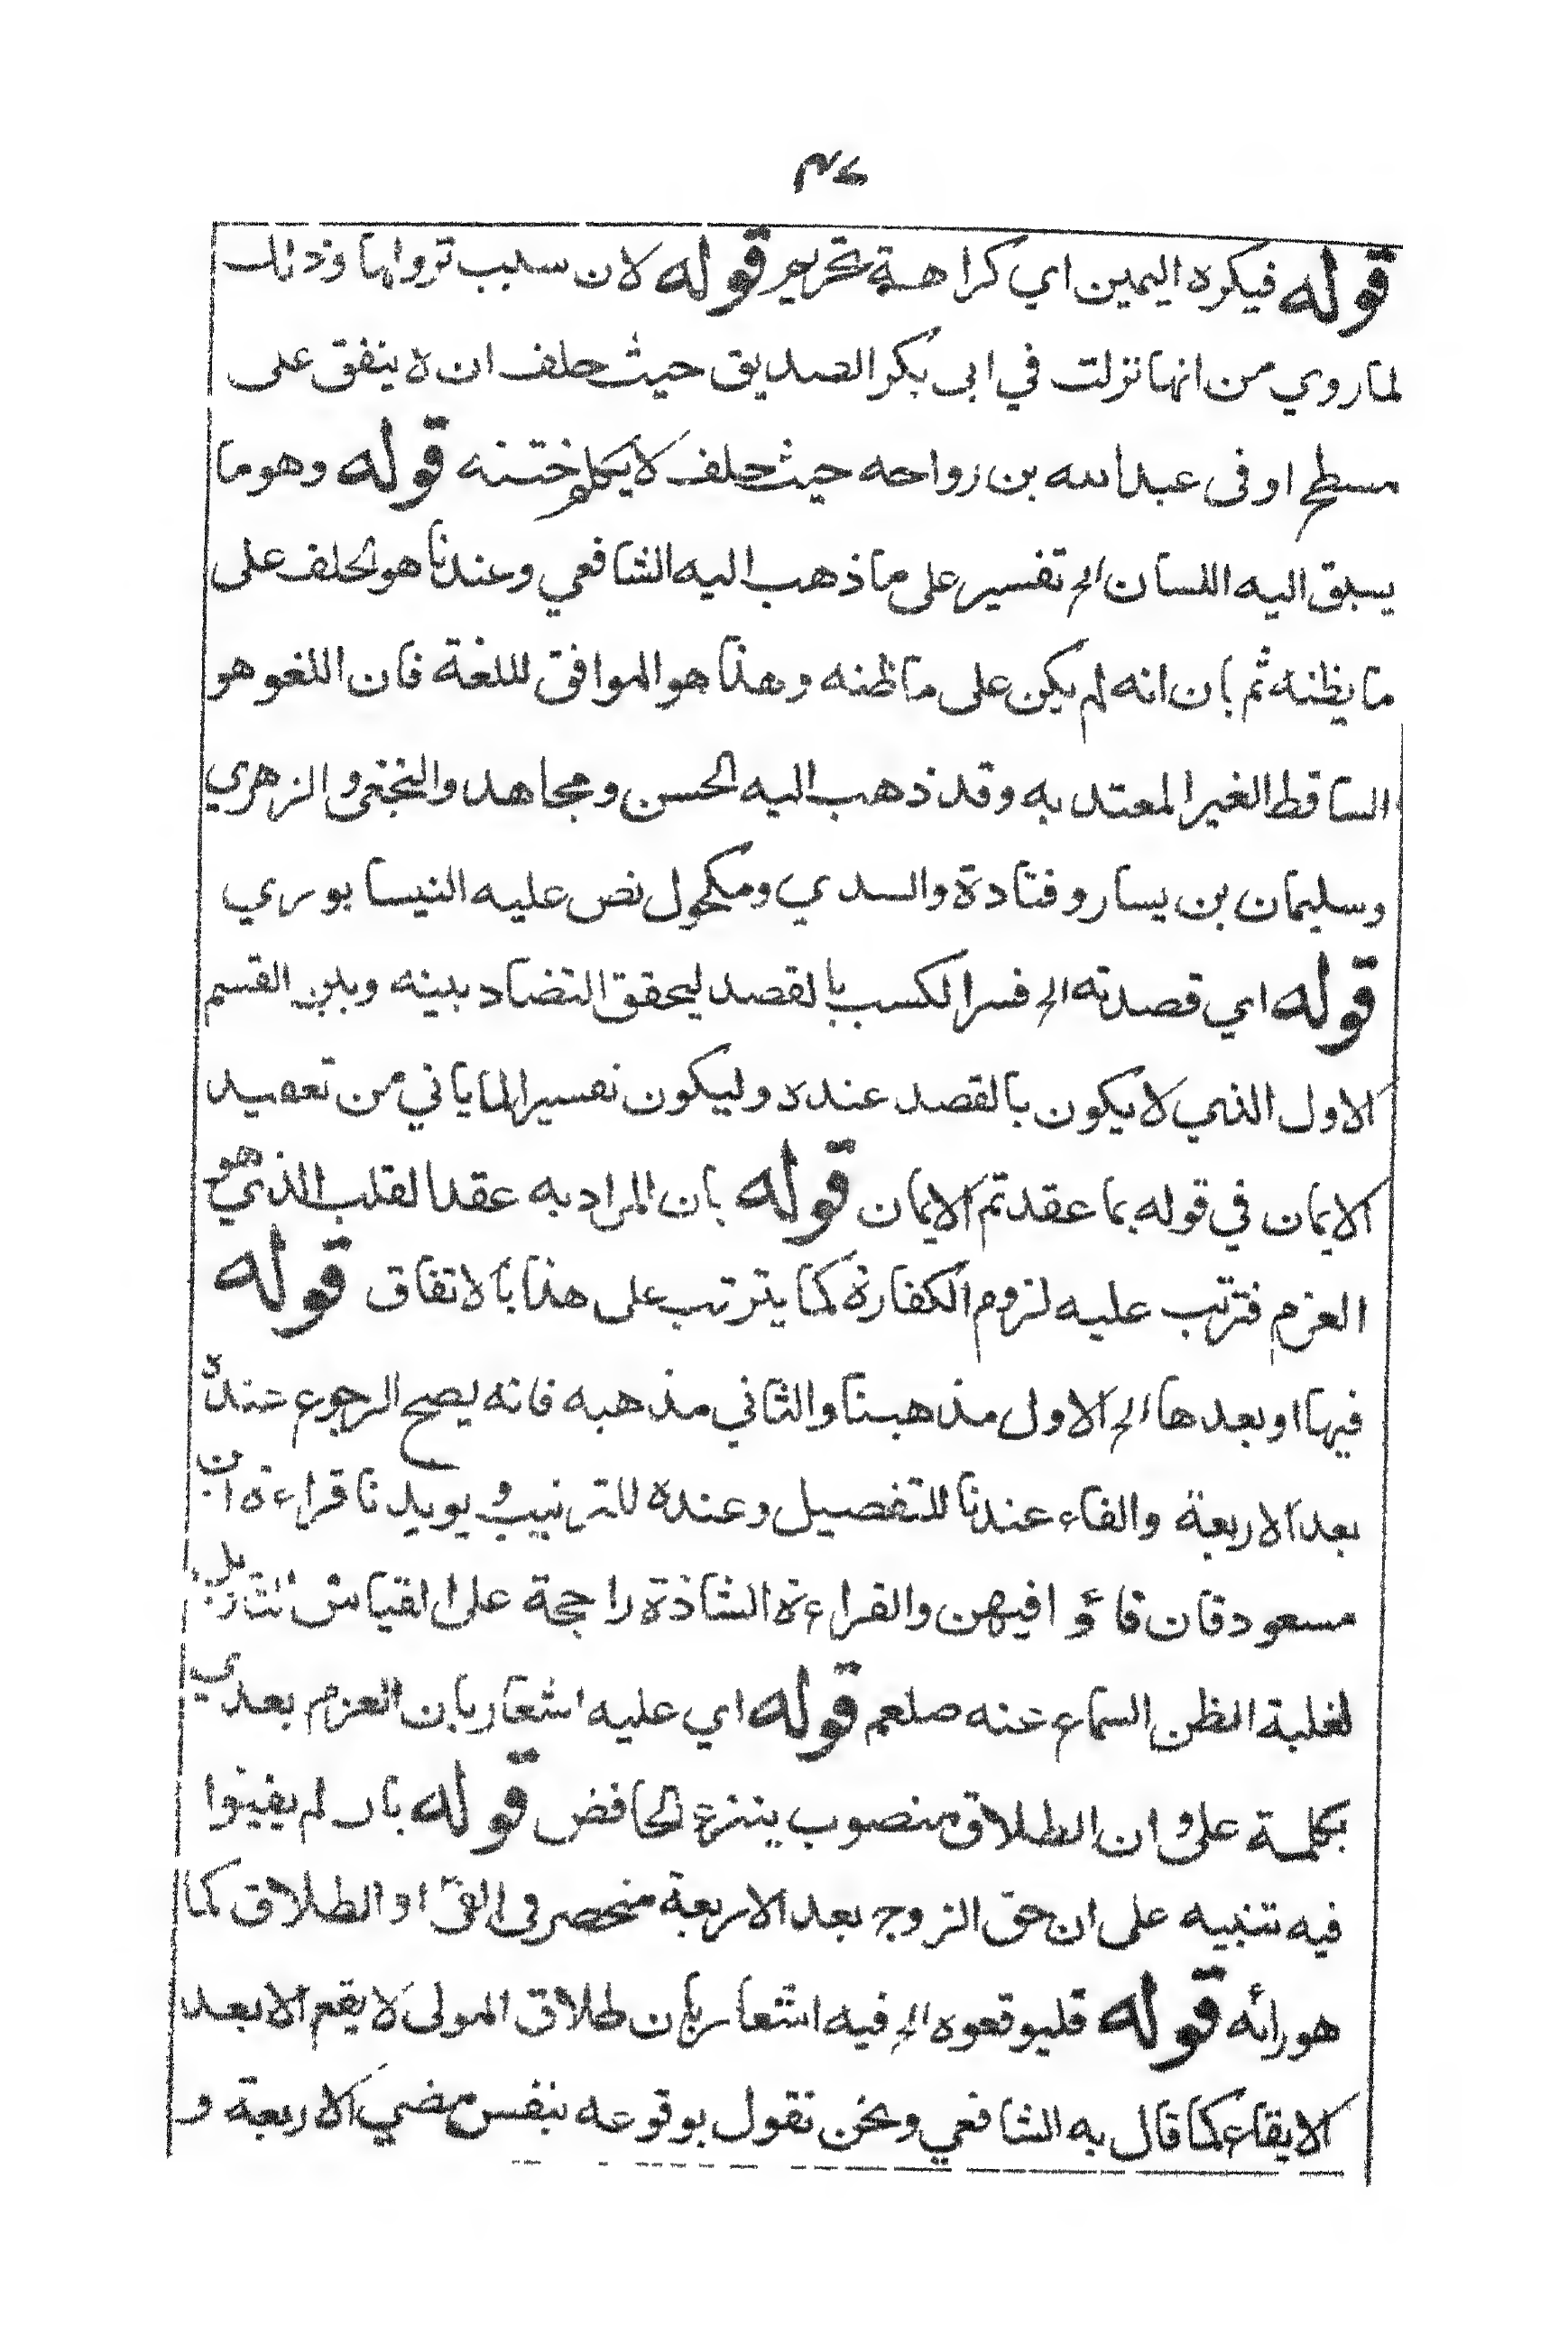 قوله فيكره اليمين اي كراهة تحريم قوله لان سبب نزولها وذلك
لما روي من انها نزلت في ابي بكر الصديق حيث حلف ان لا ينفق على
مسطح او فى عبد الله بن رواحه حيث حلف لا يكلم ختنه قوله وهو ما
يسبق اليه اللسان الخ تفسير على ما ذهب اليه الشافعي وعندنا هو الحلف على
ما يظنه ثم بان انه لم يكن على ما ظنه وهذا هو الموافق للغة فان اللغو هو
الساقط الغير المعتد به وقد ذهب اليه الحسن ومجاهد والنخعى والزهري
وسليمان بن يسار وقتادة والسدي ومكحول نص عليه النيسابوري
قوله اي قصدته الخ فسر الكسب بالقصد ليحقق التضاد بينه وبين القسم
الاول الذي لا يكون بالقصد عنده وليكون تفسيرا لما ياتي من تعقيد
الايمان في قوله بما عقدتم الايمان قوله بان المراد به عقد القلب الذي هو
العزم فترتب عليه لزوم الكفارة كما يترتب على هذا بالاتفاق قوله
فيها او بعدها الخ الاول مذهبنا والثاني مذهبه فانه يصح الرجوع عنده
بعد الاربعة والفاء عندنا للتفصيل وعنده للترتيب و يويدنا قراءة ابن
مسعود فان فاؤا فيهن والقراءة الشاذة راجحة على القياس
لغلبة الظن السماع عنه صلعم قوله اي عليه اشعار بان العزم يعدي
بكلمة على وان الطلاق منصوب بنزع الخافض قوله بان لم يفيئوا
فيه تنبيه على ان حق الزوج بعد الاربعة منحصر فى الفئ او الطلاق كما
هو رائه قوله فليوقعوه الخ فيه اشعار بان طلاق المولى لا يقع الا بعد
الايقاع كما قال به الشافعي ونحن نقول بوقوعه بنفس مضي الاربعة و